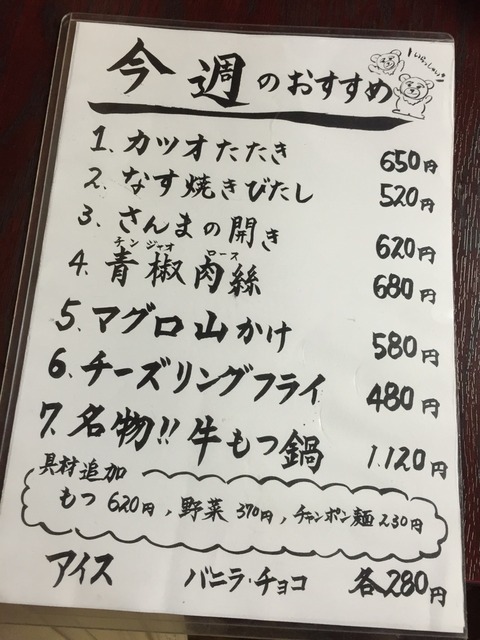 今週のおすすめ
いらっしゃい
1. カツオたたき 650円
2. なす焼きびたし 520円
3. さんまの開き 620円
チンジャオロース
4. 青椒肉絲 680円
5. マグロ山かけ 580円
6. チーズリングフライ 480円
7. 名物!! 牛もつ鍋 1.120円
具材追加
もつ 620円, 野菜 370円, チャンポン麺 230円
アイス バニラ・チョコ 各280円